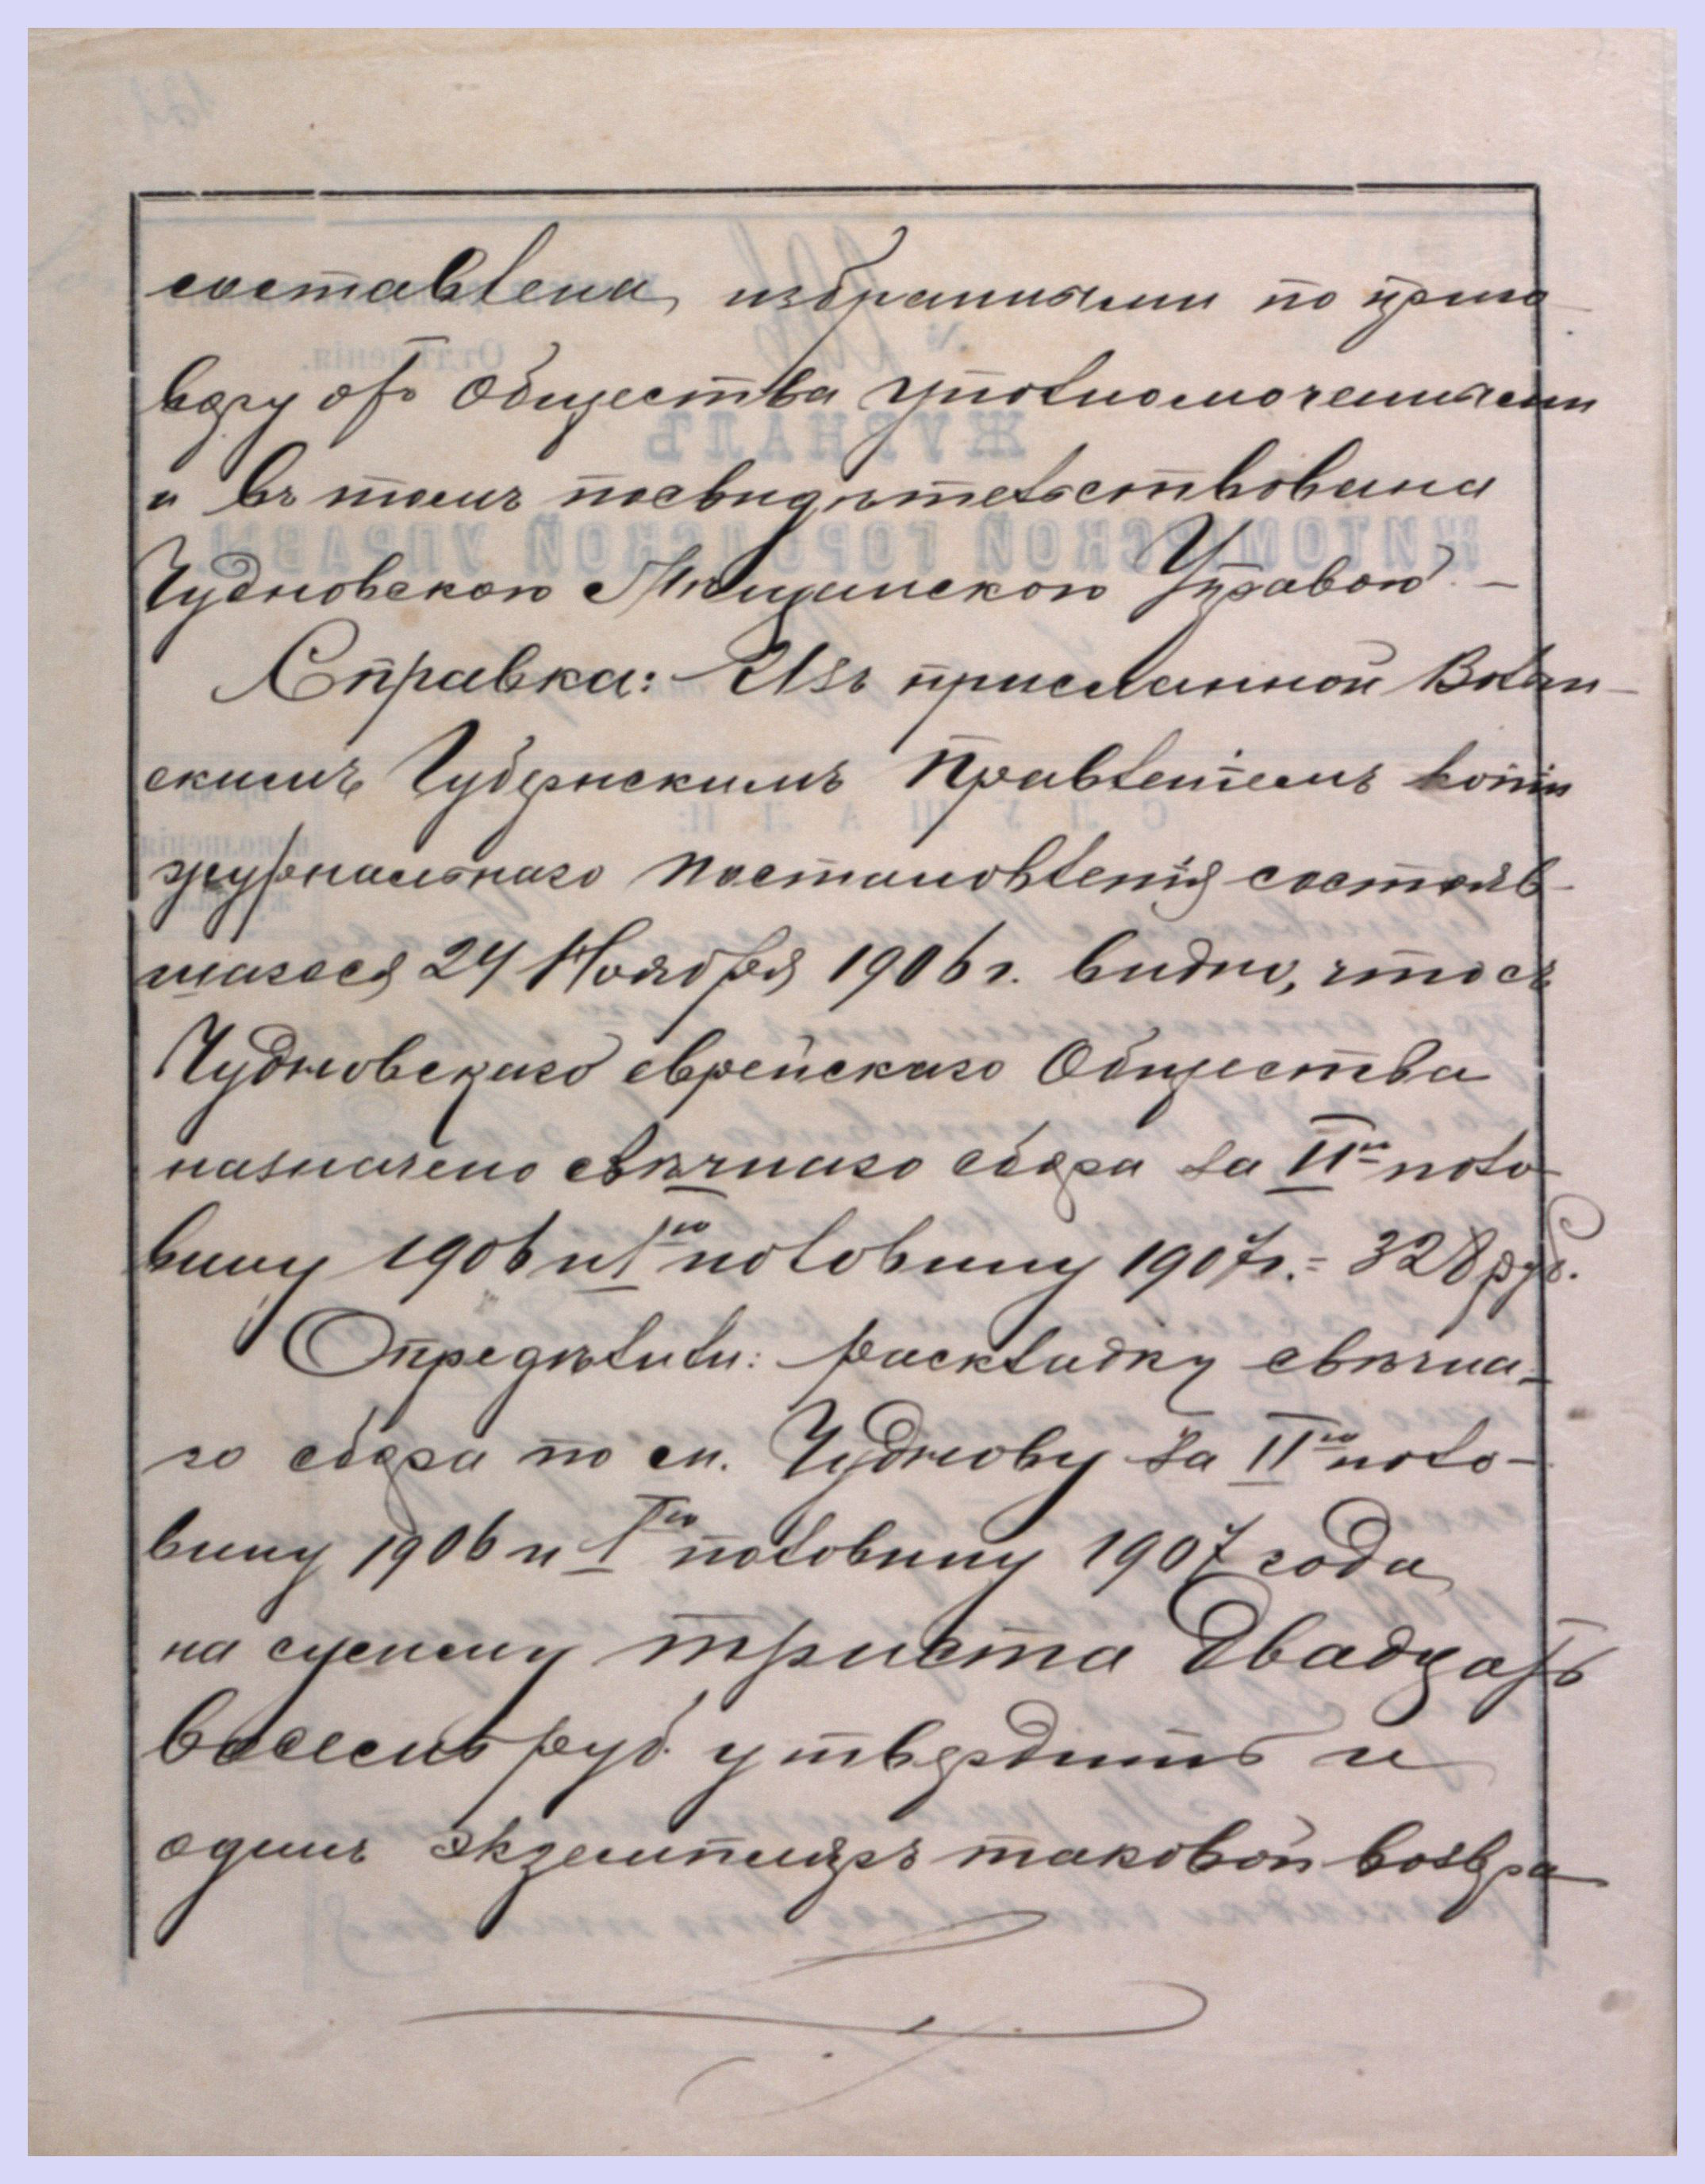 составлена избранными по приго
вору отъ Общества уполномоченными
и въ томъ посвидѣтельствована
Чудновскою Мѣщанскою Управою. —
Справка: Изъ присланной Волын-
скимъ Губернскимъ Правленіемъ копіи
журнальнаго постановленія состояв-
шагося 24 Ноября 1906 г. видно, что съ
Чудновскаго еврейскаго Общества
назначено свѣчнаго сбора за IIую поло-
вину 1906 и Iую половину 1907 г. = 328 руб.
Опредѣлили: раскладку свѣчна-
го сбора по м. Чуднову за IIую поло-
вину 1906 и Iую половину 1907 года
на сумму триста двадцать
восемь руб. утвердить и
одинъ экземпляръ таковой возвра